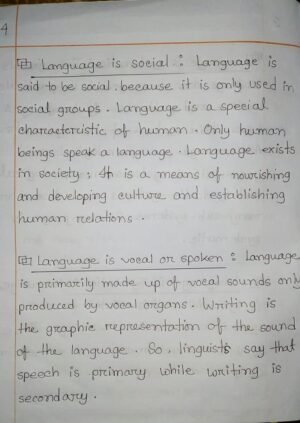 4
Language is social : Language is
said to be social. because it is only used in
social groups. Language is a special
characteristic of human. Only human
beings speak a language. Language exists
in society ; It is a means of nourishing
and developing culture and establishing
human relations.
Language is vocal or spoken : Language
is primarily made up of vocal sounds only
produced by vocal organs. Writing is
the graphic representation of the sound
of the language. So, linguists say that
speech is primary while writing is
secondary.